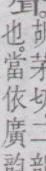 胡茅切二
也當依廣